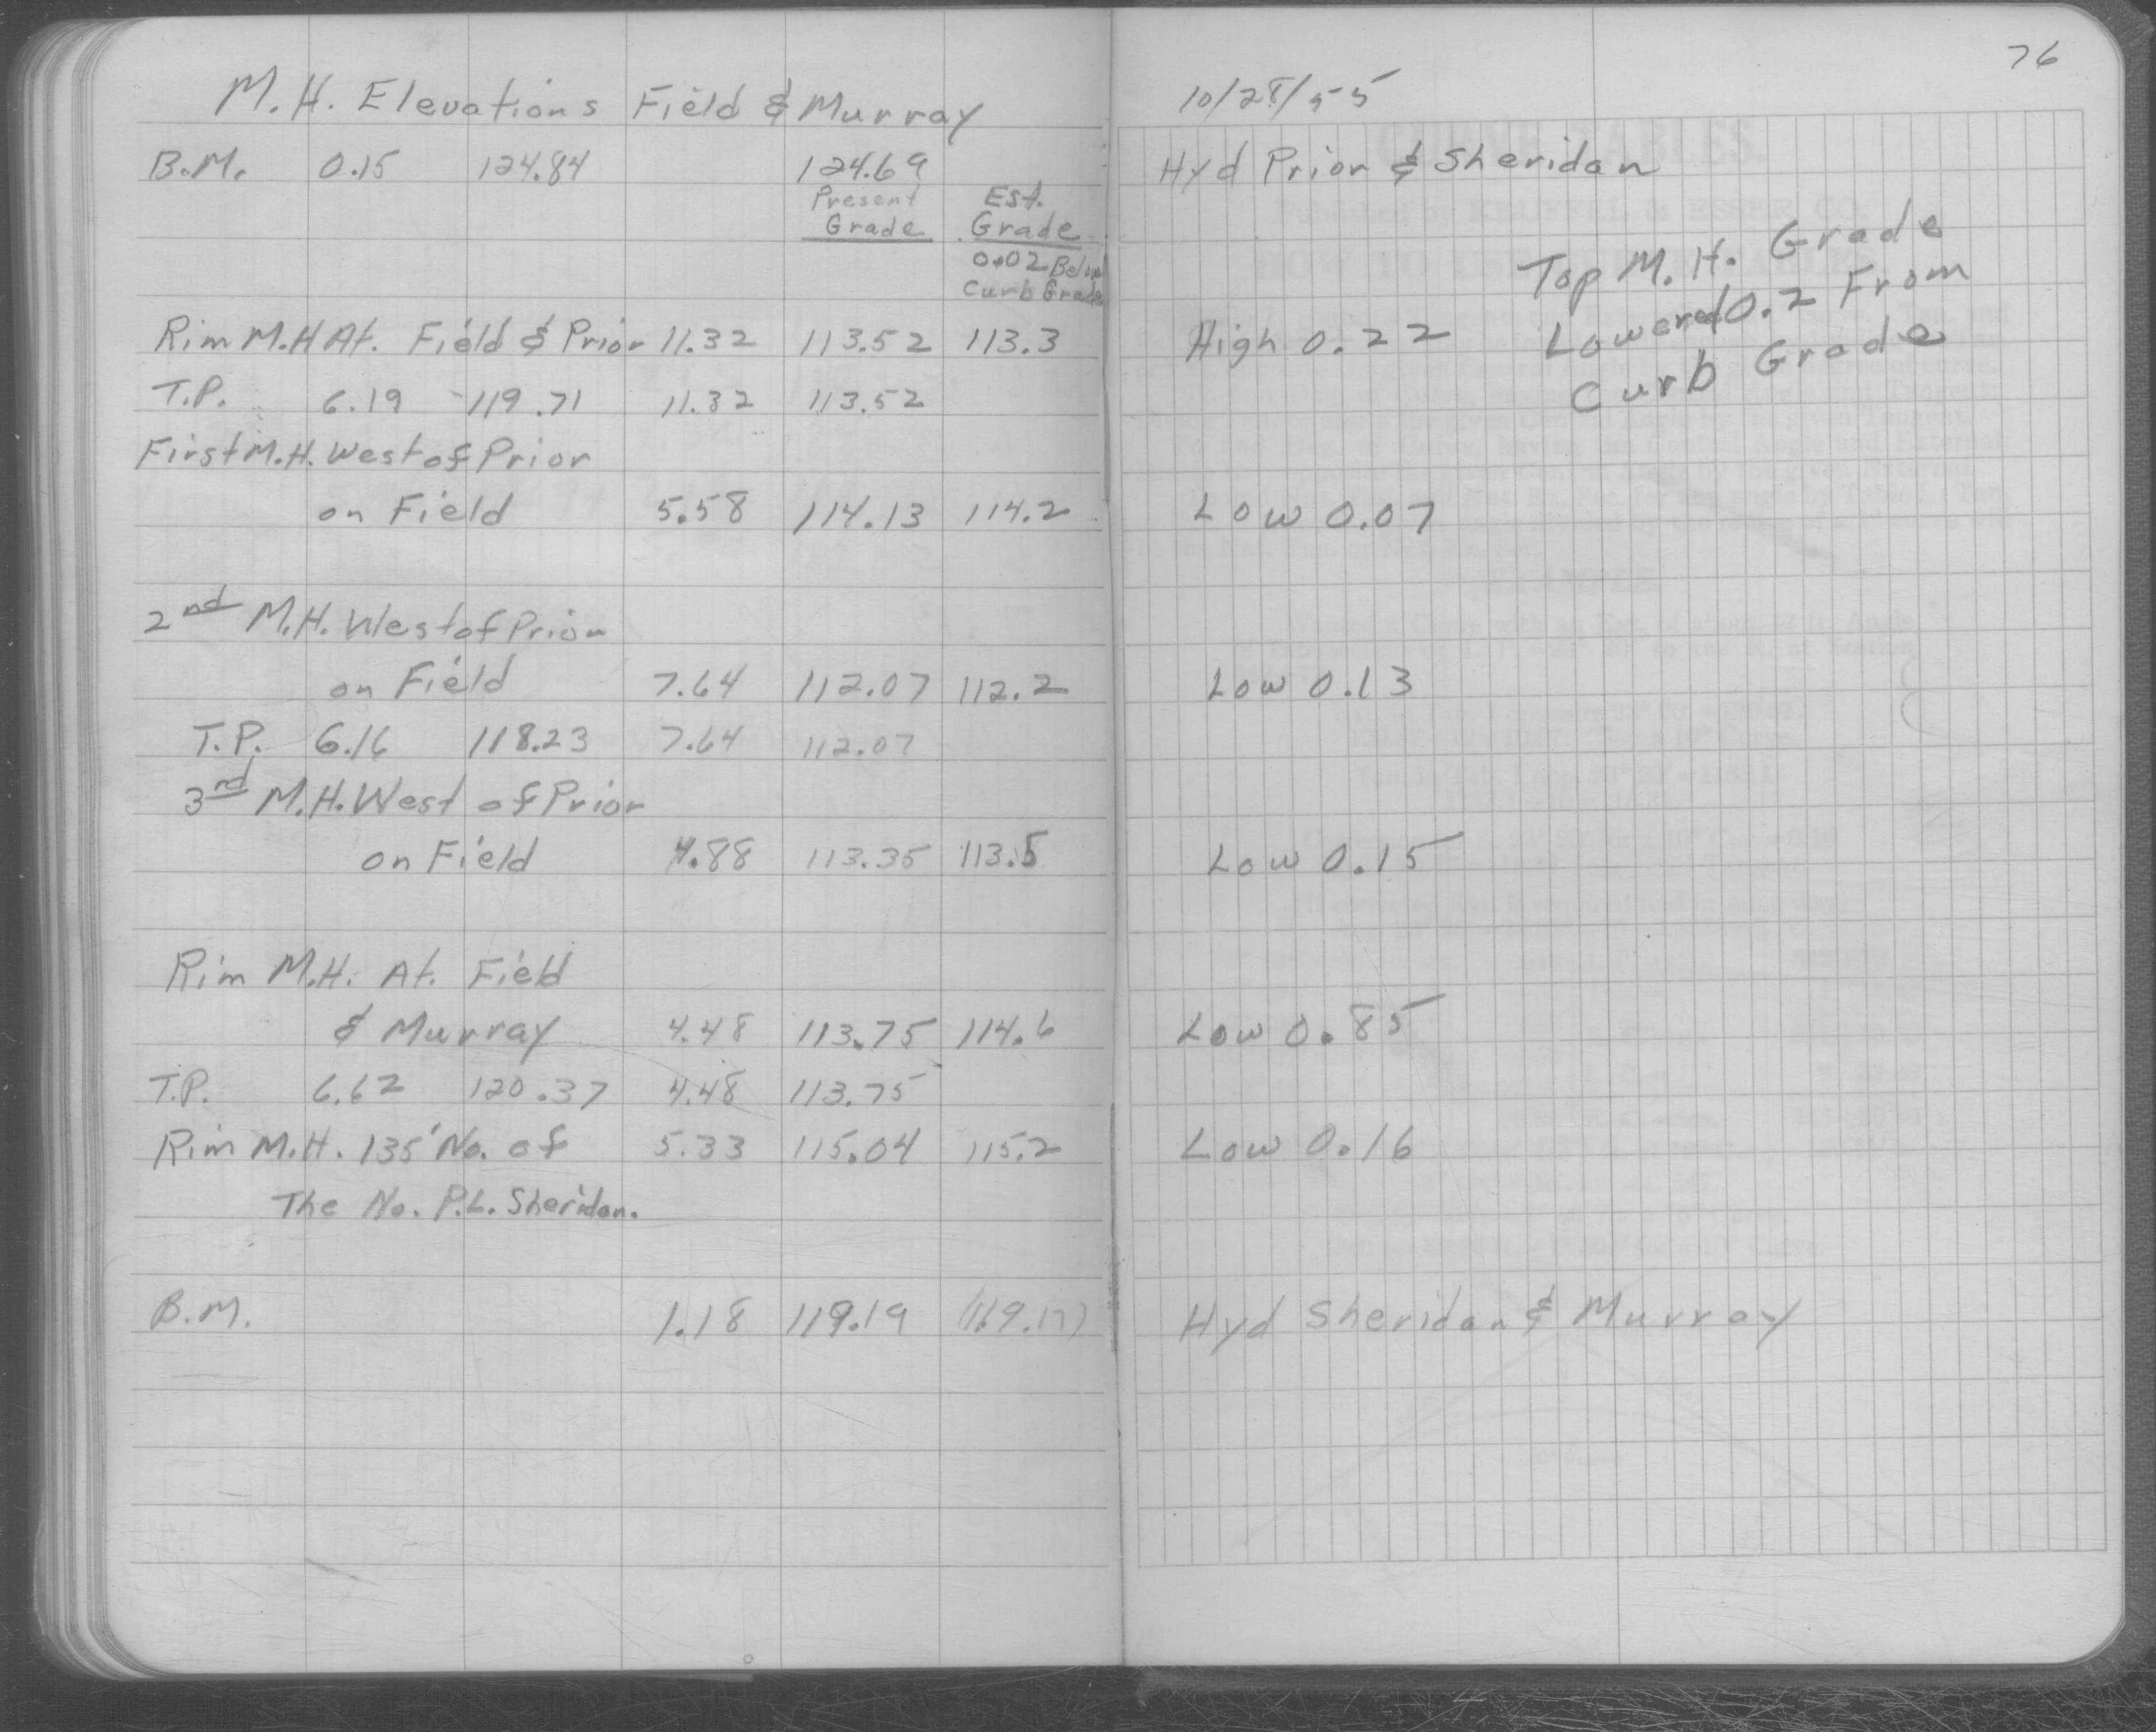 76
M.H. Elevations Field & Murray 10/28/55
B.M. 0.15 124.84 124.69 Hyd Prior & Sheridan
Present Est.
Grade Grade
0.02 Below
Curb Grade
Top M.H. Grade
Lowered 0.2 From
Curb Grade
Rim M.H At. Field & Prior 11.32 113.52 113.3 High 0.22
T.P. 6.19 119.71 11.32 113.52
First M.H. West of Prior
on Field 5.58 114.13 114.2 Low 0.07
2nd M.H. West of Prior
on Field 7.64 112.07 112.2 Low 0.13
T.P. 6.16 118.23 7.64 112.07
3rd M.H. West of Prior
on Field 4.88 113.35 113.5 Low 0.15
Rim M.H. At. Field
& Murray 4.48 113.75 114.6 Low 0.85
T.P. 6.62 120.37 4.48 113.75
Rim M.H. 135' No. of 5.33 115.04 115.2 Low 0.16
The No. P.L. Sheridan.
B.M. 1.18 119.19 (119.17) Hyd Sheridan & Murray